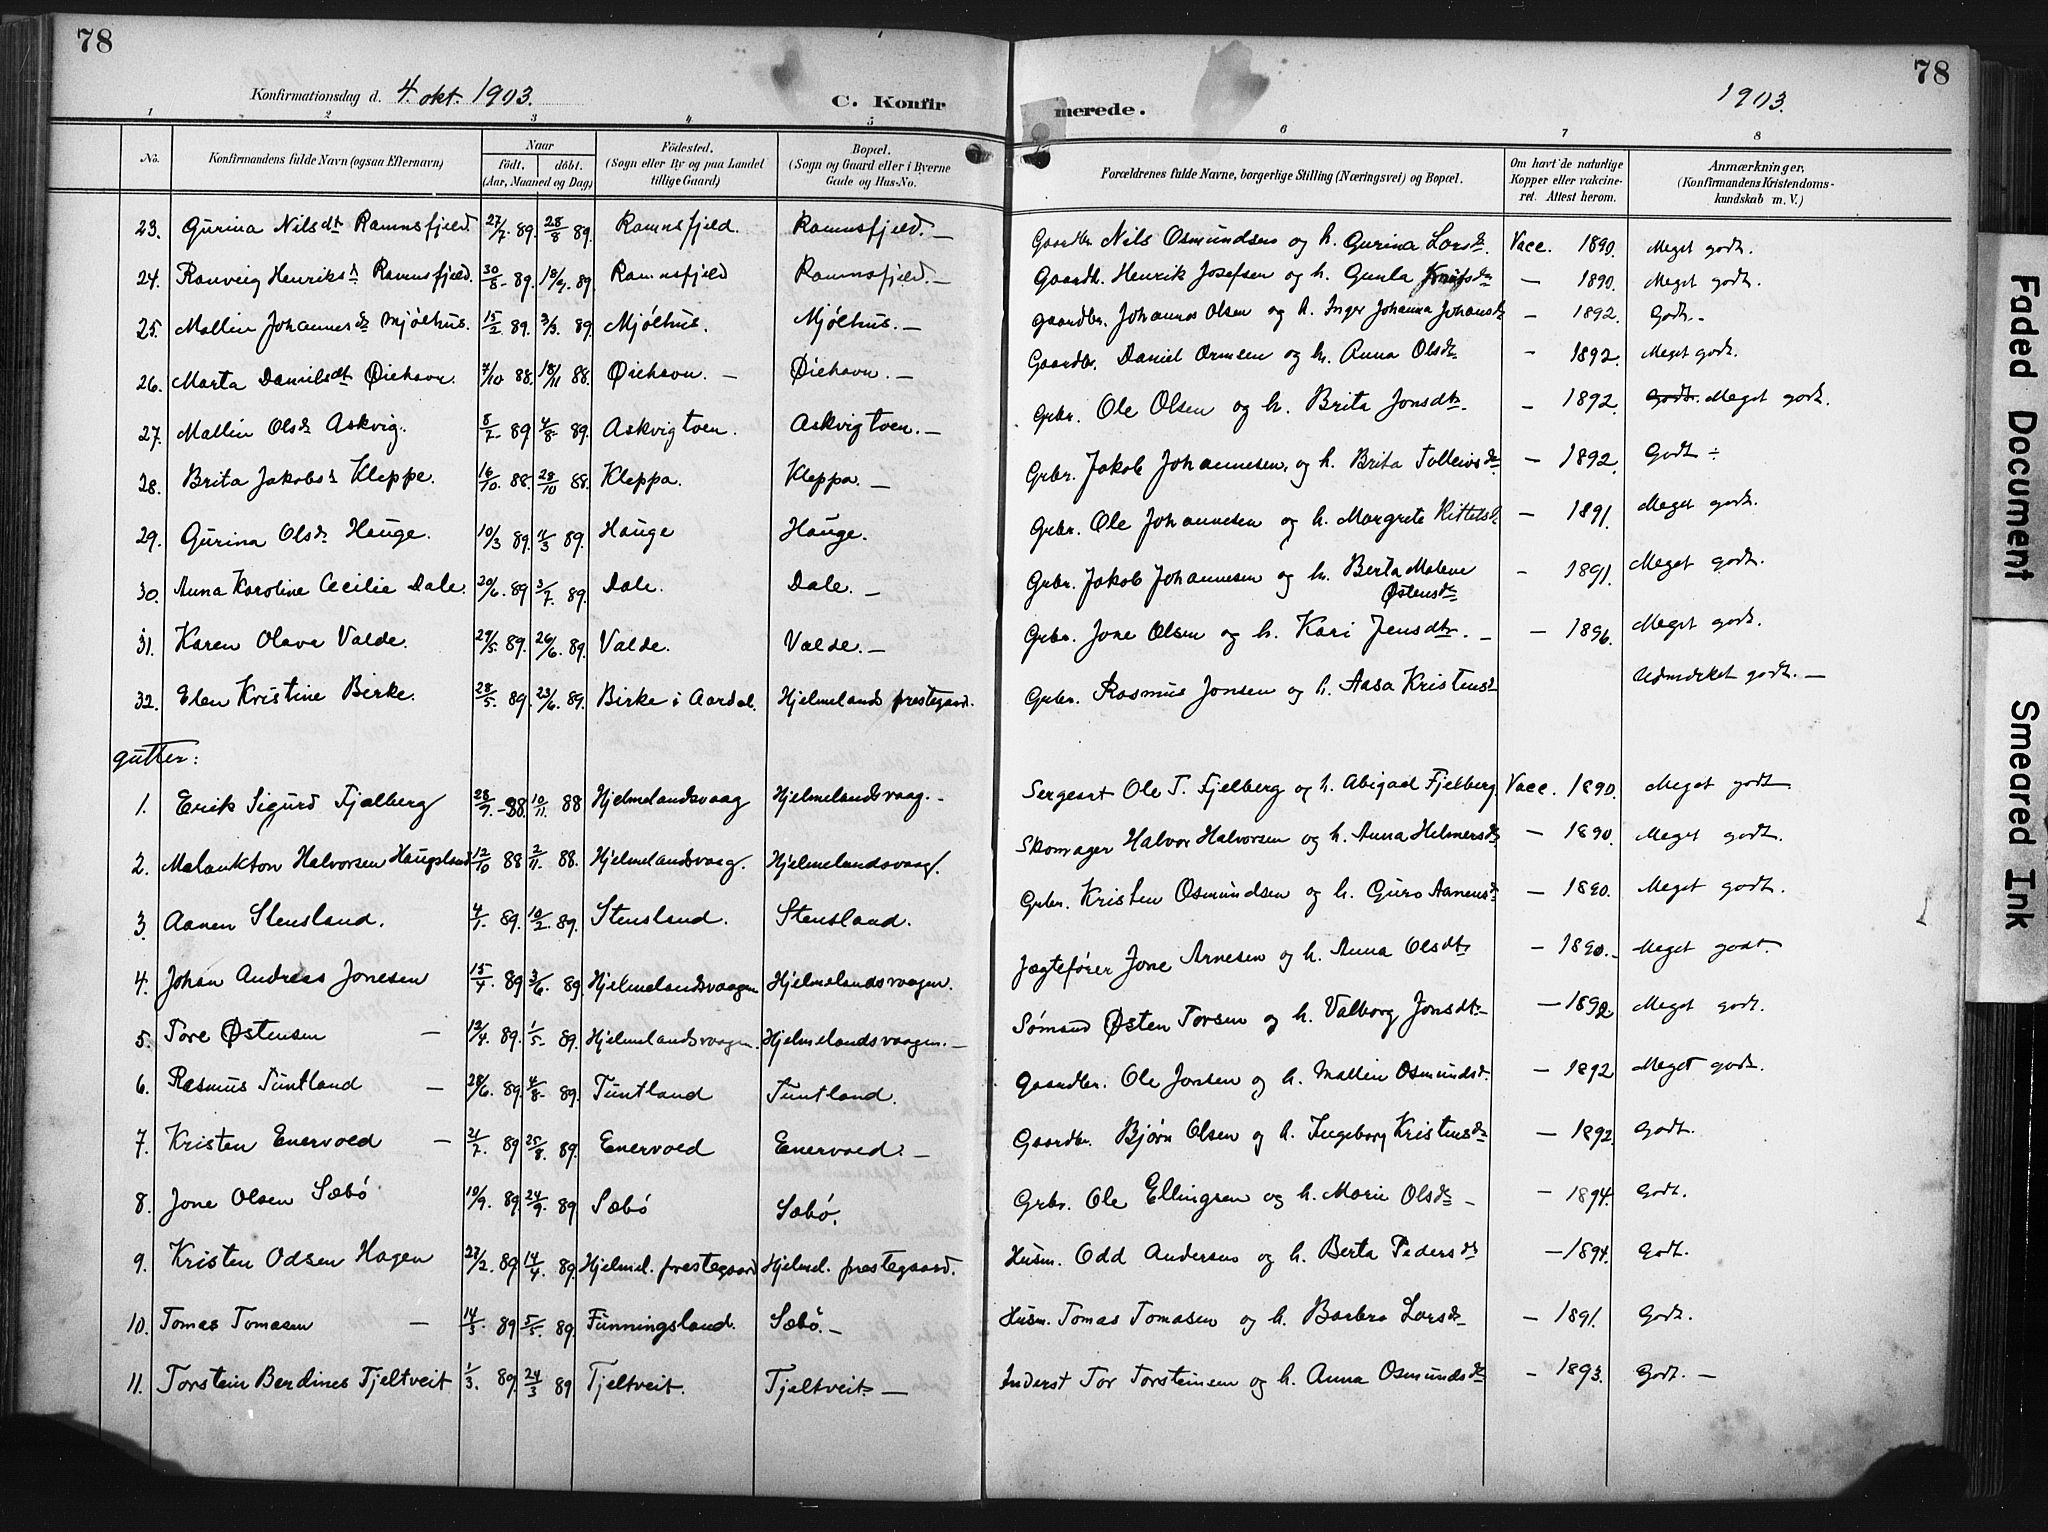 78
78
Konfirmationsdag d. 4. okt. 1903.
C. Konfir
merede.
1903.
1 2 3 4 5 6 7 8
No. Konfirmandens fulde Navn (ogsaa Efternavn) Naar födt. döbt. (Aar, Maaned og Dag) Födested. (Sogn eller By og paa Landet tillige Gaard) Bopæl. (Sogn og Gaard eller i Byerne Gade og Hus-No. Forældrenes fulde Navne, borgerlige Stilling (Næringsvei) og Bopæl. Om havt de naturlige Kopper eller vakcineret. Attest herom. Anmærkninger. (Konfirmandens Kristendomskundskab m. V.)
23. Gurina Nilsdt Ramnsfjeld 27/7. 89. 28/8 89. Ramnsfjeld. Ramnsfjeld. — Gaardbr. Nils Osmundsen og h. Gurina Larsdt. Vacc. 1890. Meget godt.
24. Ranveig Henriksdt Ramnsfjeld. 30/8 - 89. 18/9. 89 Ramnsfjeld Ramnsfjeld. — Gaardbr. Henrik Josefsen og h. Gunla — 1890. Meget godt.
25. Mallin Johannesdt Mjölhus. 15/2. 89. 3/3. 89. Mjölhus. Mjölhus. — Gaardbr. Johannes Olsen og h. Inger Johanna Johansdt — 1892. Godt. -
26. Marta Danielsdt Øiehavn. 7/10 88. 18/11 88. Øiehavn. — Øiehavn. — Gaardbr. Daniel Ormsen og h. Anna Olsdt. - 1892. Meget godt.
27. Mallin Olsdt Askvig. 8/7 89 4/8 89. Askvigtoen. Askvigtoen. — Grbr. Ole Olsen og h. Brita Jonsdt. - 1892. Godt. Meget godt.
28. Brita Jakobsdt Kleppe. 16/10. 88. 28/10 88. Kleppa. Kleppa. — Grbr. Jakob Johannesen, og h. Brita Tolleivsdt — 1892. Godt -
29. Gurina Olsdt Hauge. 10/3 89. 11/3 89. Hauge Hauge. Grbr. Ole Johannesen og h. Margrete Kittelsdt — 1891. Meget godt.
30. Anna Karoline Cecilie Dale. 20/6. 89 3/7. 89. Dale. Dale. — Grbr. Jakob Johannesen og h. Berta Malene Østensdt - 1891. Meget godt.
31. Karen Olava Valde. 29/5. 89. 26/6. 89. Valde. Valde. — Grbr. Jone Olsen og h. Kari Jensdt. — — 1896. Meget godt.
32. Elen Kristine Birke. 28/5. 89. 23/6. 89. Birke i Aardal. Hjelmelands prestegaard. Grbr. Rasmus Jonsen og h. Aasa Kristensdt Udmærket godt. —
gutter:
1. Erik Sigurd Fjælberg 28/9. - 88. 10/11. 88 Hjelmelandsvaag Hjelmelandsvaag. - Sergeant Ole T. Fjelberg og h. Abigael Fjelberg. Vacc. 1890. Meget godt
2. Melankton Halvorsen Haugsland 12/10 88 2/11. 88. Hjelmelandsvaag. Hjelmelandsvaag. Skomager Halvor Halvorsen og h. Anna Helmersdt — 1890. Meget godt.
3. Aanen Stensland. 4/1. 89. 10/2. 89. Stensland. Stensland. Grbr. Kristen Osmundsen og h. Guro Aanensdt — 1890. Meget godt.
4. Johan Andreas Jonesen 15/4. 89 3/6. 89. Hjelmelandsvaagen Hjelmelandsvaagen. Jægtefører Jone Arnesen og h. Anna Olsdt — 1890. - Meget godt.
5. Tore Østensen — 13/4. 89. 1/5. 89. Hjelmelandsvaagen. Hjelmelandsvaagen. — Sömand Østen Torsen og h. Valborg Jonsdt. — 1892. Meget godt.
6. Rasmus Tuntland — 28/6. 89 4/8. 89. Tuntland Tuntland. Gaardbr. Ole Jonsen og h. Mallin Osmundsdt. — 1892 Meget godt.
7. Kristen Enervoed — 21/7. 89 25/8. 89. Enervoed Enervoed. — Gaardbr. Bjørn Olsen og h. Ingeborg Kristensdt — 1892. Godt.
8. Jone Olsen Sæbö 10/9. 89. 24/9. 89 Sæbö Sæbö. Grbr. Ole Ellingsen og h. Marie Olsdt - — 1894. Godt.
9. Kristen Odsen Hagen 23/2. 89 14/4. 89. Hjelmel. prestegaard Hjelmel. prestegaard. Husm. Odd Andersen og h. Berta Pedersdt — 1894. Godt.
10. Tomas Tomasen — 14/3. 89 5/5. 89. Funningsland. Sæbö. — Husm. Tomas Tomasen og h. Barbra Larsdt — 1891. Godt.
11. Torstein Berdines Tjeltveit 1/3. 89. 24/3 89 Tjeltveit. Tjeltveit — Inderst Tor Torsteinsen og h. Anna Osmundsdt — 1893. Godt. —
Faded Document
Smeared Ink